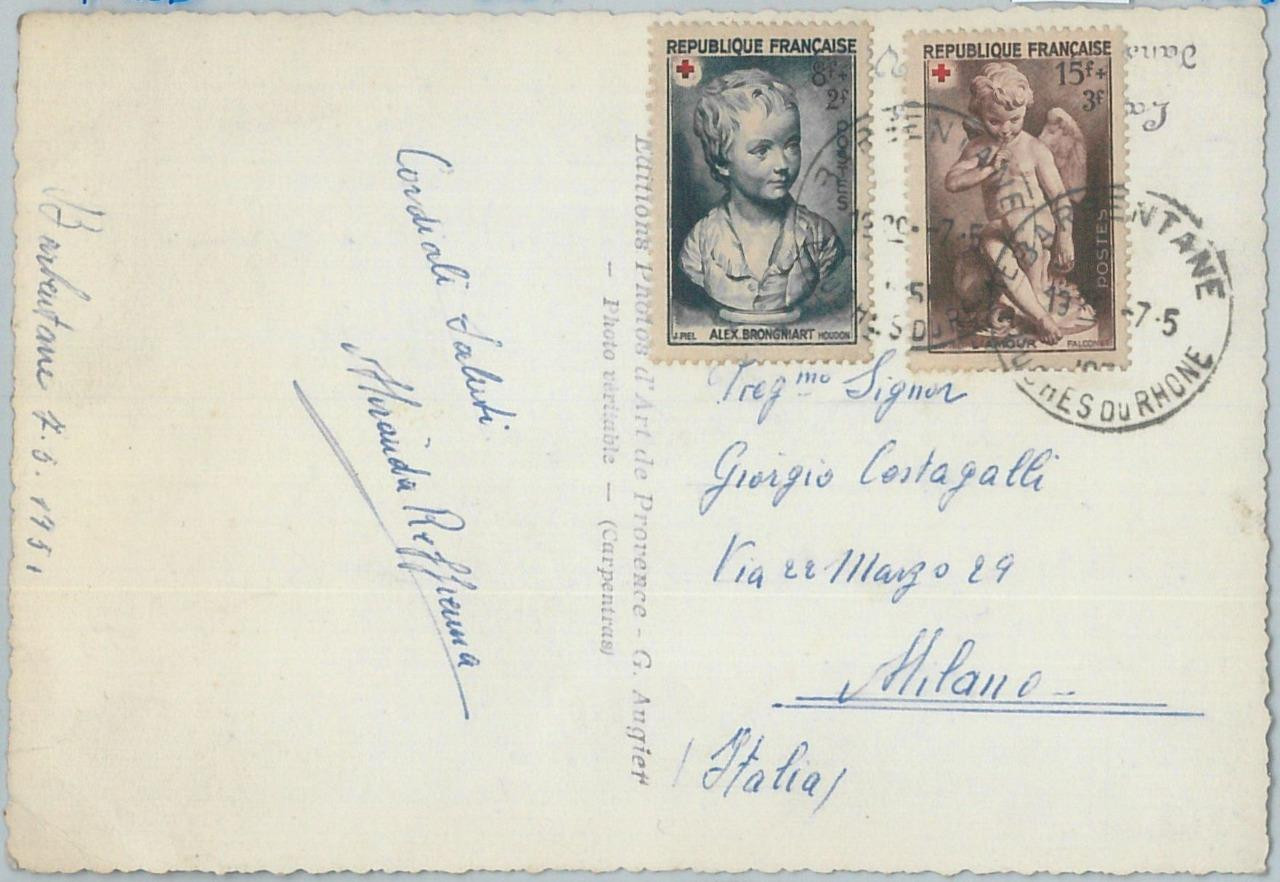 REPUBLIQUE FRANÇAISE
8f+
2f
POSTES
J. PIEL ALEX. BRONGNIART HOUDON
REPUBLIQUE FRANÇAISE
15f+
3f
POSTES
L'AMOUR FALCONET
BARBENTANE
-7-5
BARBENTANE
13 -7-5
BOUCHES DU RHONE
Editions Photos d'Art de Provence - G. Augier
— Photo véritable — (Carpentras)
Barbentane 7.5.1951
Cordiali Saluti
Preg.mo Signor
Giorgio Costagalli
Via 22 Marzo 29
Milano
(Italia)